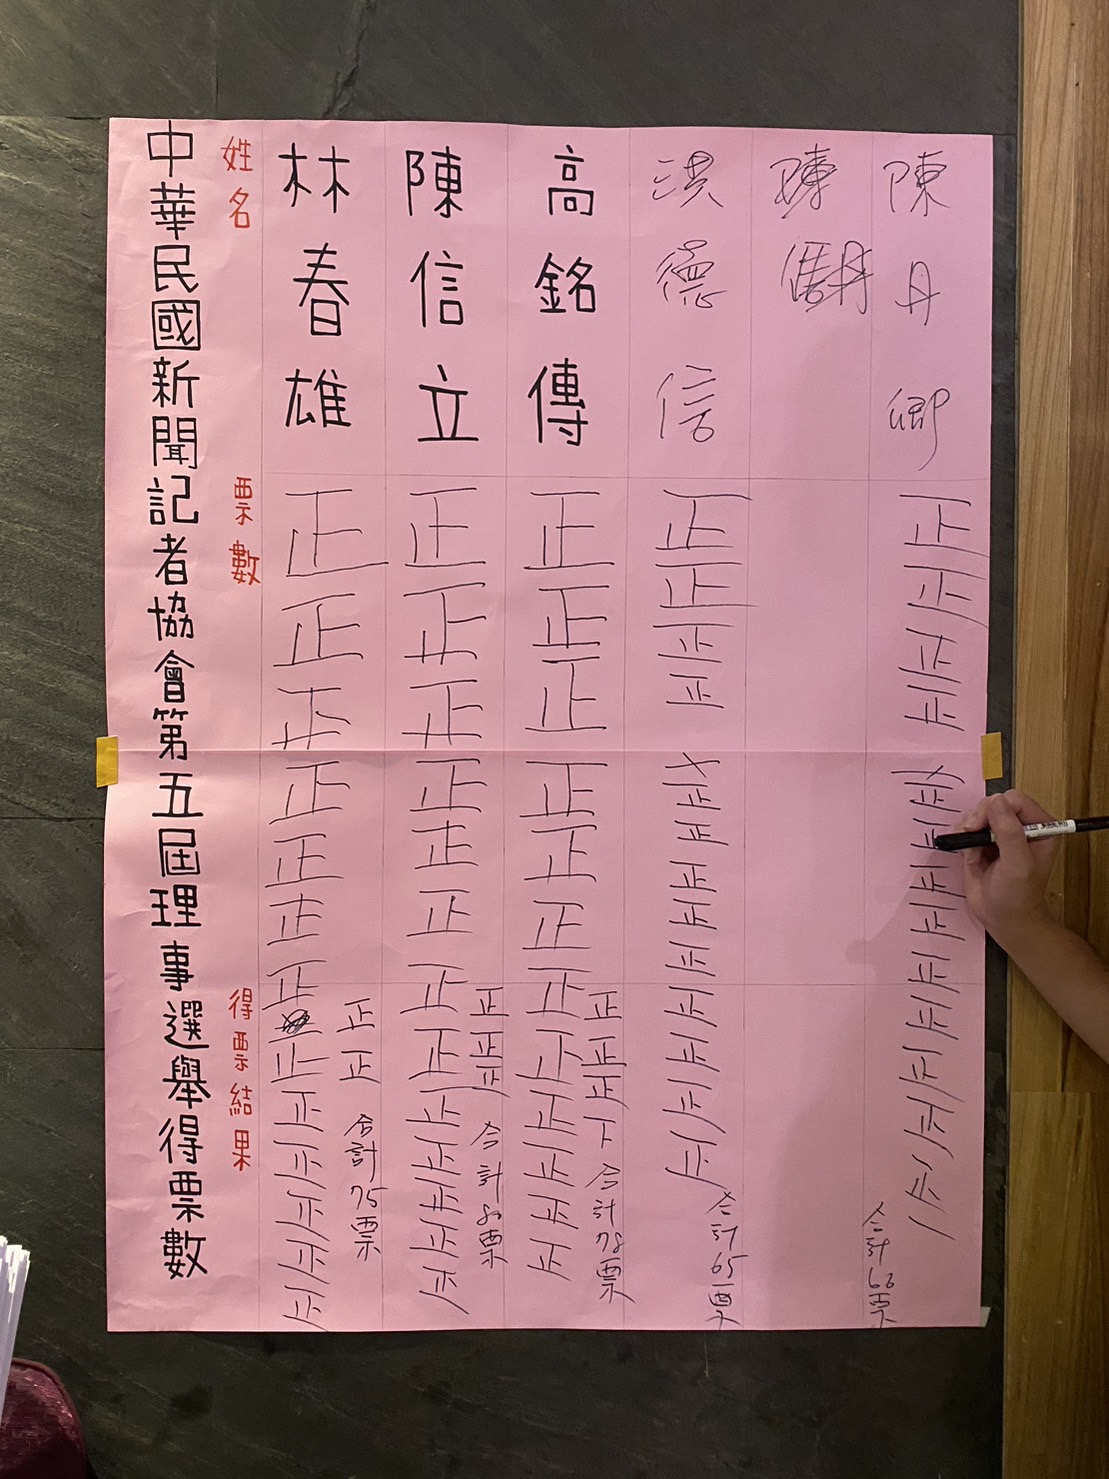 中華民國新聞記者協會第五屆理事選舉得票數
姓名
票數
得票結果
林春雄
正正正正正正正正正正正正正
正正
合計75票
陳信立
正正正正正正正正正正正正正
正正正
合計80票
高銘傳
正正正正正正正正正正正正
正正正下
合計78票
洪德信
正正正正正正正正正正正正正
合計65票
陳
陳丹卿
正正正正正正正正正正正正正一
合計66票